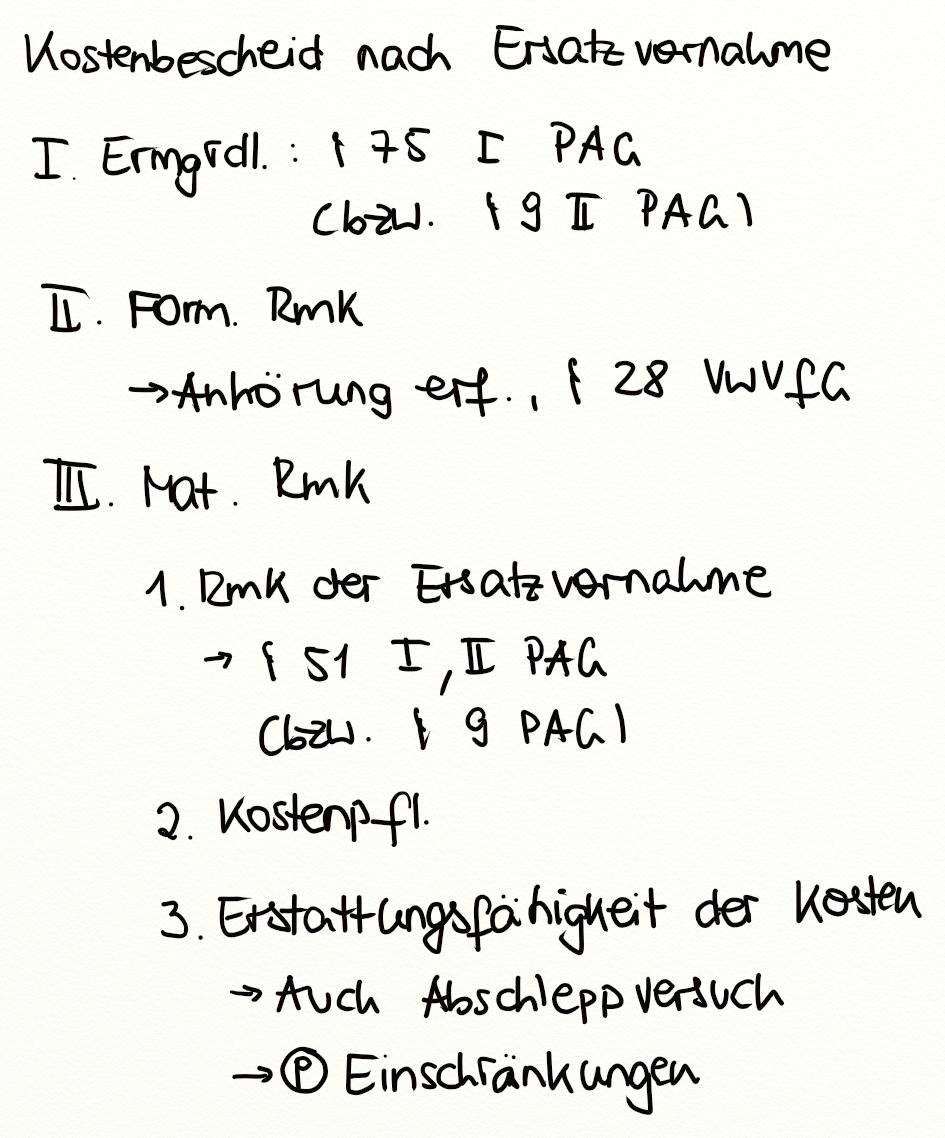 Kostenbescheid nach Ersatzvornahme
I. Ermgrdl.: § 75 I PAG
(bzw. § 9 II PAG)
II. Form. Rmk
→ Anhörung erf., § 28 VwVfG
III. Mat. Rmk
1. Rmk der Ersatzvornahme
→ § 51 I, II PAG
(bzw. § 9 PAG)
2. Kostenpfl.
3. Erstattungsfähigkeit der Kosten
→ Auch Abschleppversuch
→ Ⓟ Einschränkungen